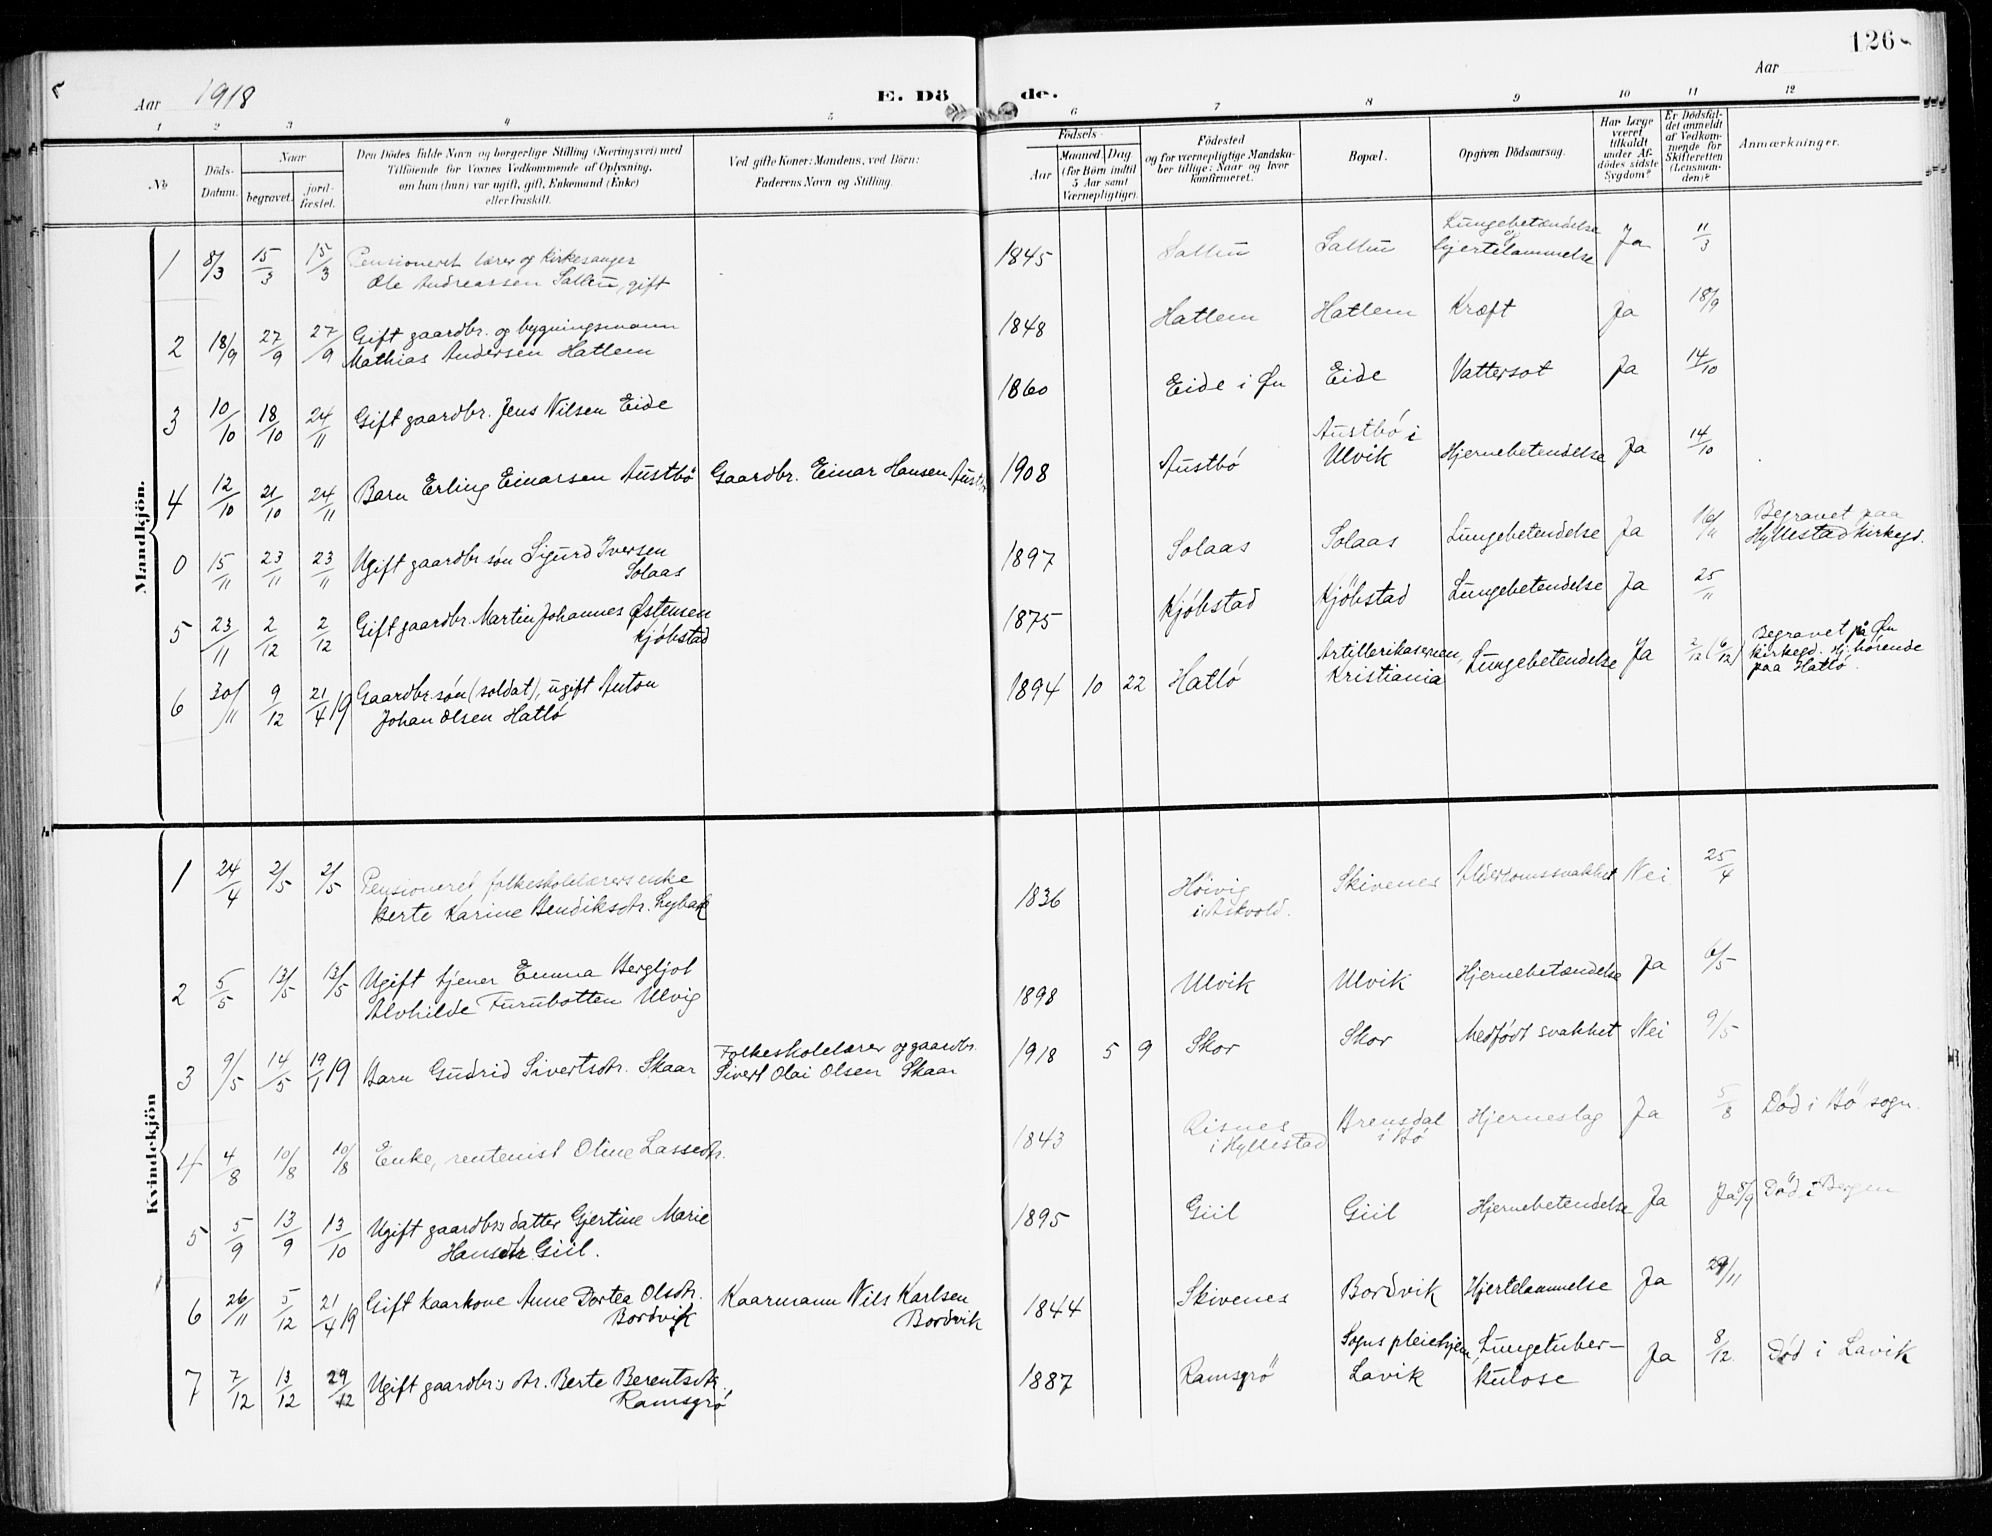 126
Aar 1918
E. Dö de.
Aar
1 2 3 4 5 6 7 8 9 10 11 12
No
Döds-Datum.
Naar
begravet.
jord-fæstet.
Den Dödes fulde Navn og borgerlige Stilling (Næringsvei) med
Tilföiende for Voxnes Vedkommende af Oplysning,
om han (hun) var ugift, gift, Enkemand (Enke)
eller fraskilt.
Ved gifte Koner: Mandens, ved Börn:
Faderens Navn og Stilling.
Födsels-
Aar
Maaned. Dag.
(for Börn indtil
5 Aar samt
Værnepligtige).
Födested
og for værnepligtige Mandska-
ber tillige: Naar og hvor
konfirmeret.
Bopæl.
Opgiven Dödsaarsag.
Har Læge
været
tilkaldt
under Af-
dödes sidste
Sygdom?
Er Dödsfal-
det anmeldt
af Vedkom-
mende for
Skifteretten
(Lensman-
den)?
Anmærkninger.
Mandkjön.
1 8/3 15/3 15/3 Pensioneret lærer og kirkesanger
Ole Andreassen Sallün, gift
1845 Sallün Sallün Lungebetændelse
og hjertelammelse Ja 11/3
2 18/9 27/9 27/9 Gift gaardbr. og bygningsmann
Mathias Andersen Hatlem
1848 Hatlem Hatlem Kræft Ja 18/9
3 10/10 18/10 24/11 Gift gaardbr. Jens Nilsen Eide
1860 Eide i Øn Eide Vattersot Ja 14/10
4 12/10 21/10 24/11 Barn Erling Einarsen Austbö Gaardbr. Einar Hansen Austbö
1908 Austbö Austbö i
Ulvik Hjernebetendelse Ja 14/10
0 15/11 23/11 23/11 Ugift gaardbr. søn Sigurd Iversen
Solaas
1897 Solaas Solaas Lungebetendelse Ja 16/11 Begravet paa
Hyllestad kirkegd.
5 23/11 2/12 2/12 Gift gaardbr. Martin Johannes Østensen
Kjöbstad
1875 Kjöbstad Kjöbstad Lungebetendelse Ja 25/11
6 30/11 9/12 21/4 19 Gaardbr. søn (soldat), ugift Anton
Johan Olsen Hatlö
1894 10 22 Hatlö Artillerikasernen,
Kristiania Lungebetendelse Ja 2/12 (6/12) Begravet på Øn
kirkegd. Hj. hørende
paa Hatlö.
Kvindekjön
1 24/4 2/5 2/5 Pensioneret folkeskolelærers enke
Berte Karine Hendiksdtr. Lybæk
1836 Höivig
i Askvold. Skivenes Alderdomssvakhet Nei 25/4
2 5/5 13/5 13/5 Ugift tjener Emma Bergljot
Alvhilde Furubotten Ulvig
1898 Ulvik Ulvik Hjernebetændelse Ja 6/5
3 9/5 14/5 19/1 19 Barn Gudrid Sivertsdtr. Skaar Folkeskolelærer og gaardbr.
Sivert Olai Olsen Skaar
1918 5 9 Skor Skor Medfödt svakhet Nei 9/5
4 4/8 10/8 10/8 Enke, rentenist Oline Lassedtr.
1843 Risnes
i Hyllestad Brensdal
i Bö Hjerneslag Ja 5/8 Död i Bö sogn.
5 5/9 13/9 13/10 Ugift gaardbrs datter Gjertine Marie
Hansdtr. Giil.
1895 Giil Giil Hjernebetendelse Ja Ja 8/9 Död i Bergen
6 26/11 5/12 21/4 19 Gift kaarkone Anne Dortea Olsdtr.
Bordvik Kaarmann Nils Karlsen
Bordvik
1844 Skivenes Bordvik Hjertelammelse Ja 29/11
7 7/12 13/12 29/12 Ugift gaardbrs dtr. Berte Berentsdtr.
Ramsgrö
1887 Ramsgrö Sogns pleiehjem,
Lavik Lungetuber-
kulose Ja 8/12. Död i Lavik